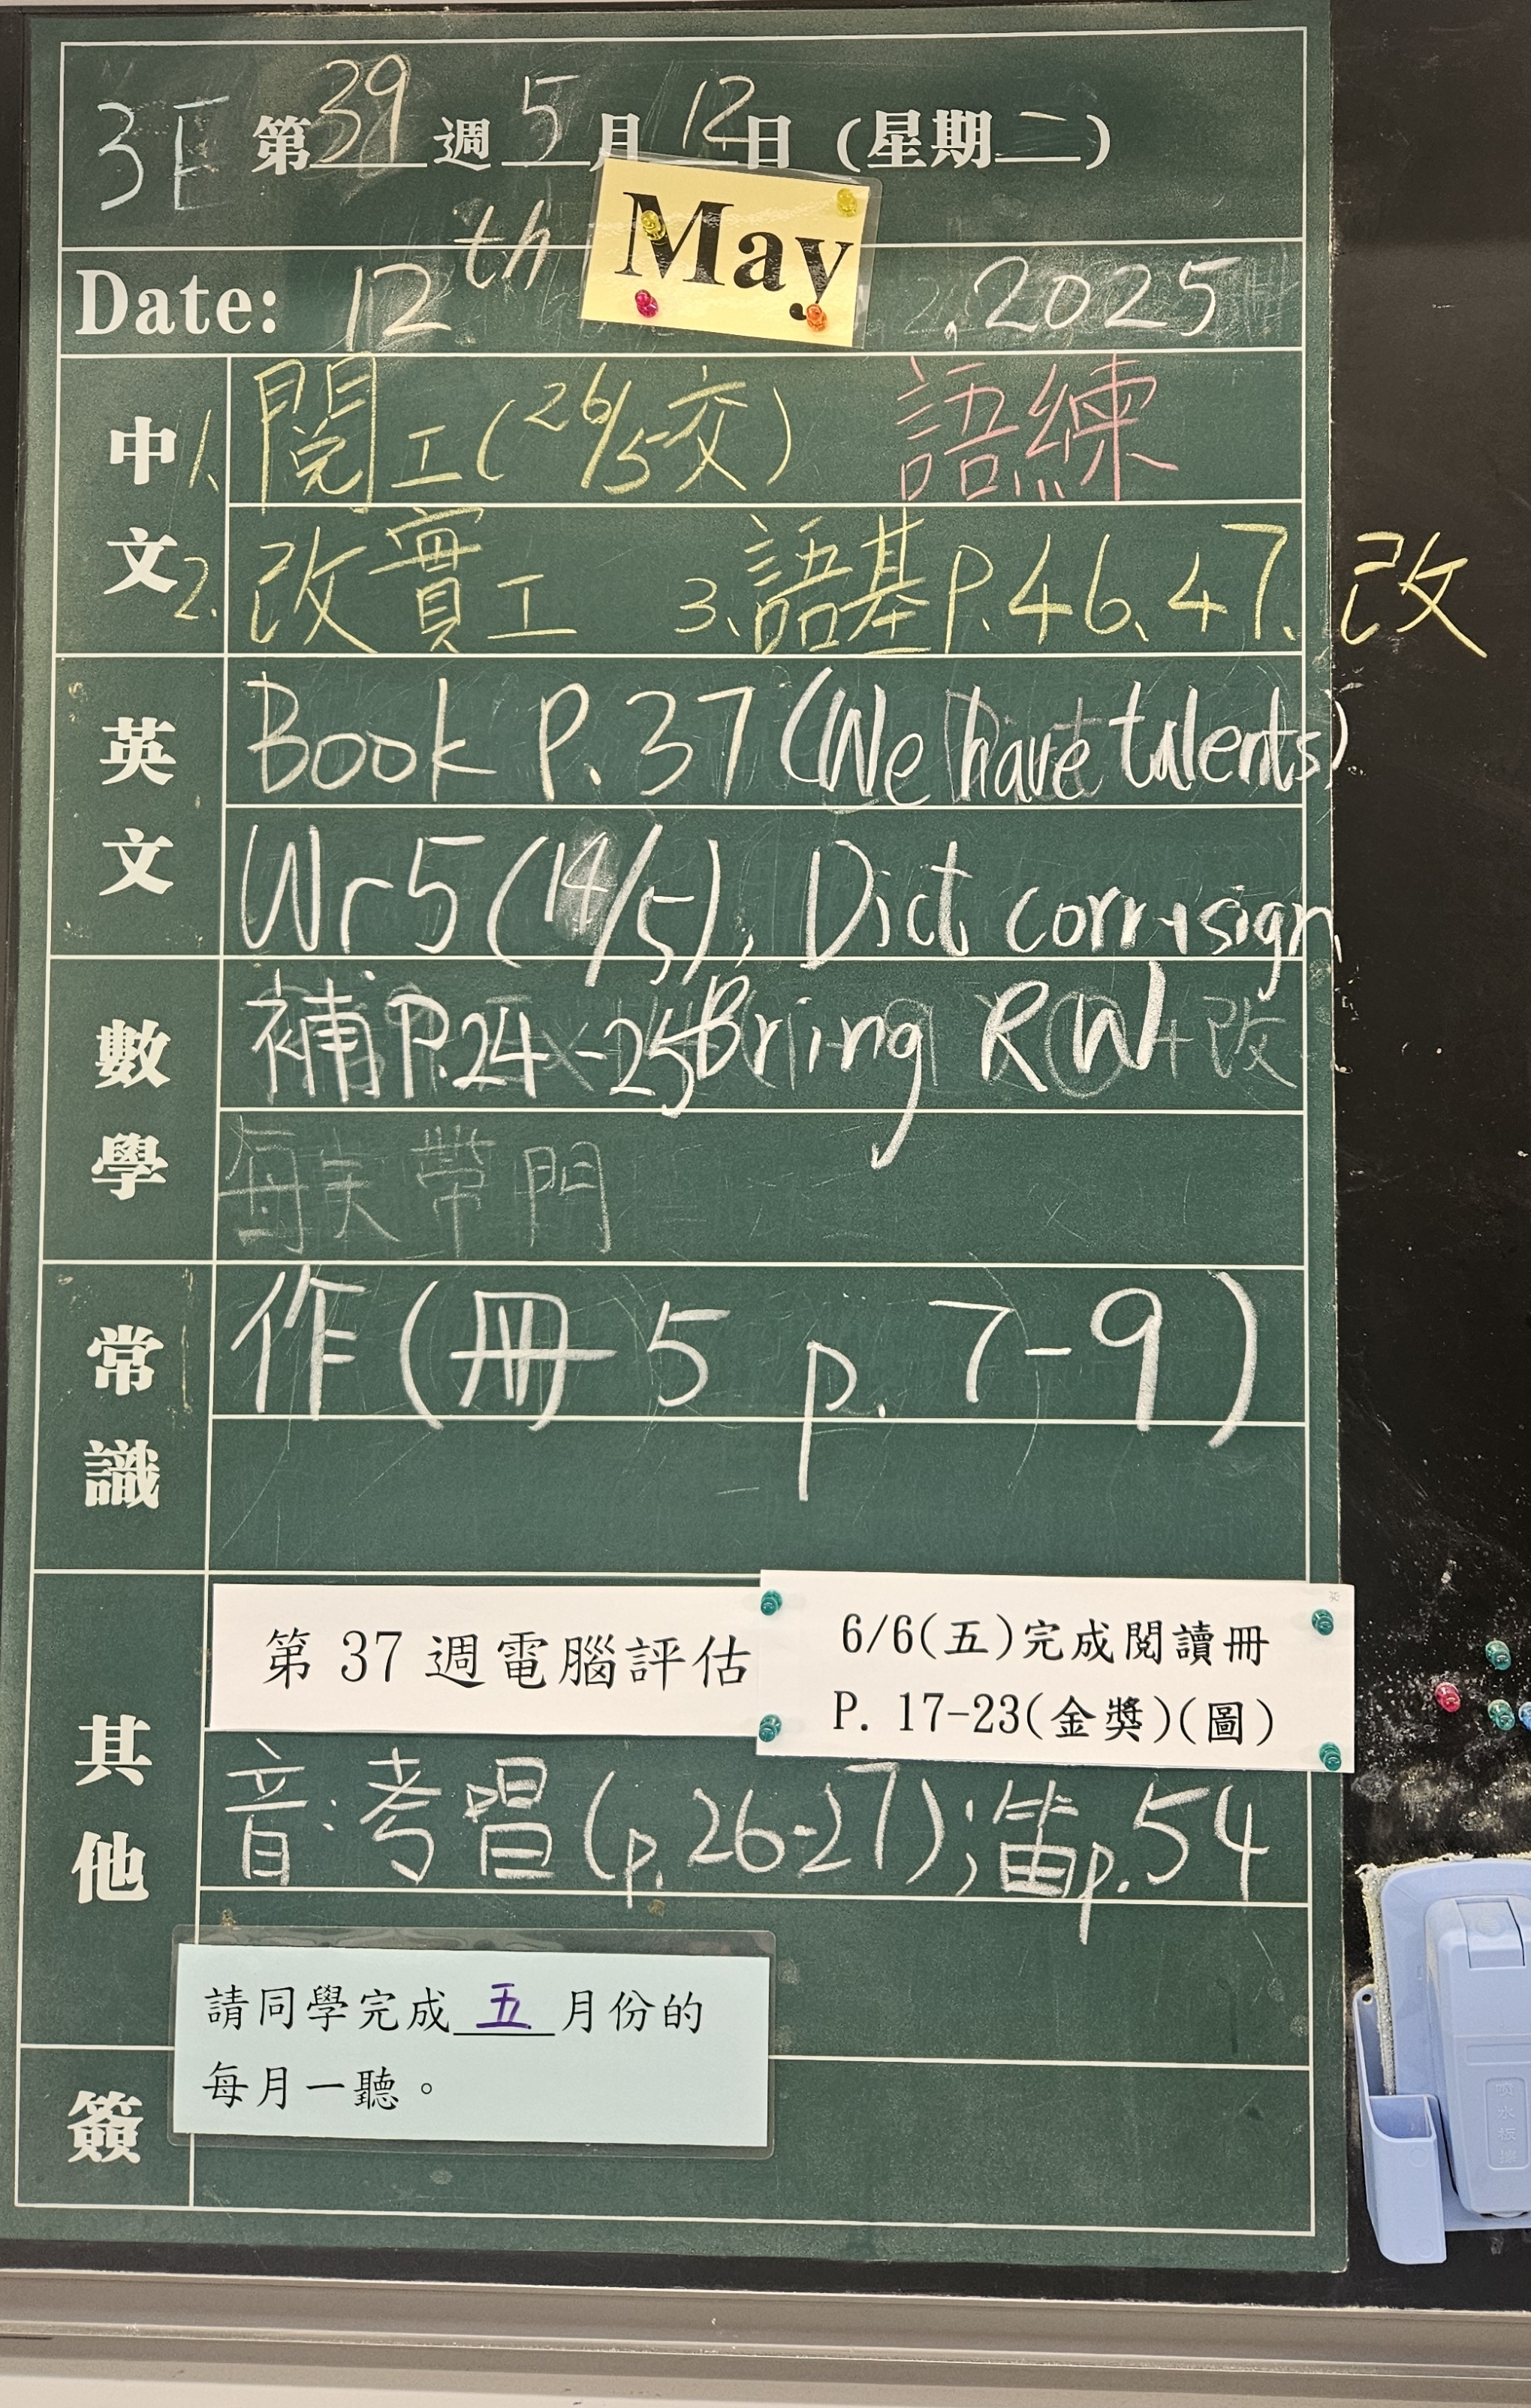 3E 第39週5月12日(星期二)
Date: 12th May, 2025
中文
1. 閱工(26/5交) 語練
2. 改實工 3、語基P.46、47、改
英文
Book P.37 (We have talents)
Wr 5 (14/5), Dict corr+sign
數學
補P.24-25 Bring RW
每天帶
常識
作(冊5 p.7-9)
其他
第 37 週電腦評估
6/6(五)完成閱讀冊
P. 17-23(金獎)(圖)
音:考唱(p.26-27);笛p.54
請同學完成 五 月份的
每月一聽。
簽
噴水板擦